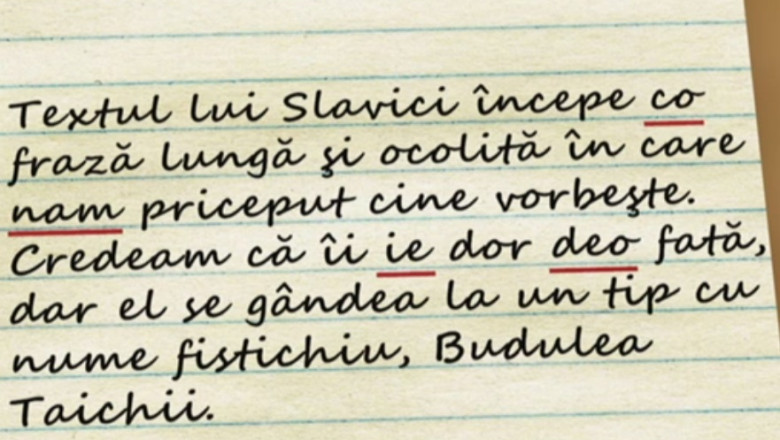 Textul lui Slavici începe co
frază lungă şi ocolită în care
nam priceput cine vorbeşte.
Credeam că îi ie dor deo fată,
dar el se gândea la un tip cu
nume fistichiu, Budulea
Taichii.